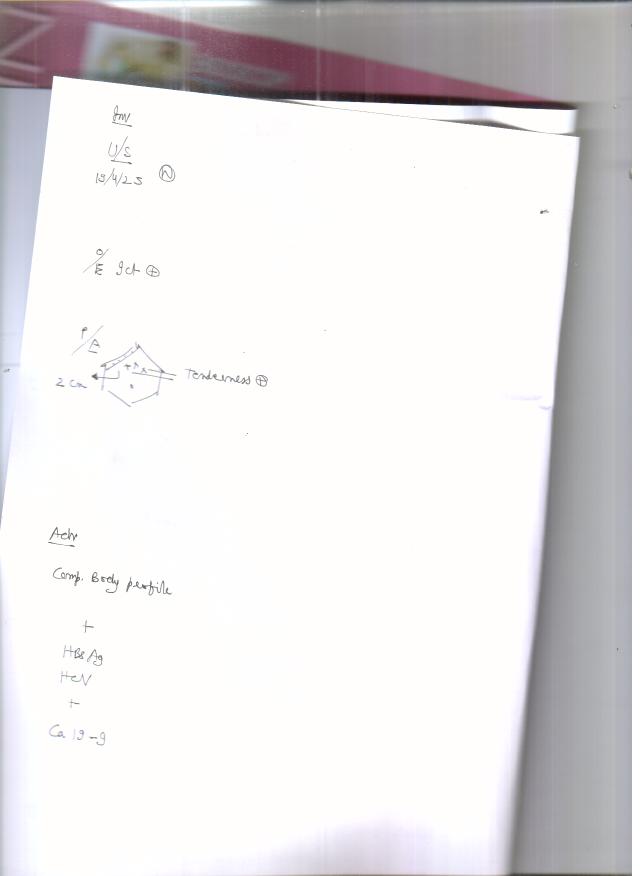 Inv
U/S
19/4/25 Ⓝ
O/E Ict ⊕
P/A
2 cm Tenderness ⊕
Adv
Comp. Body profile
+
HBsAg
HCV
+
Ca 19-9